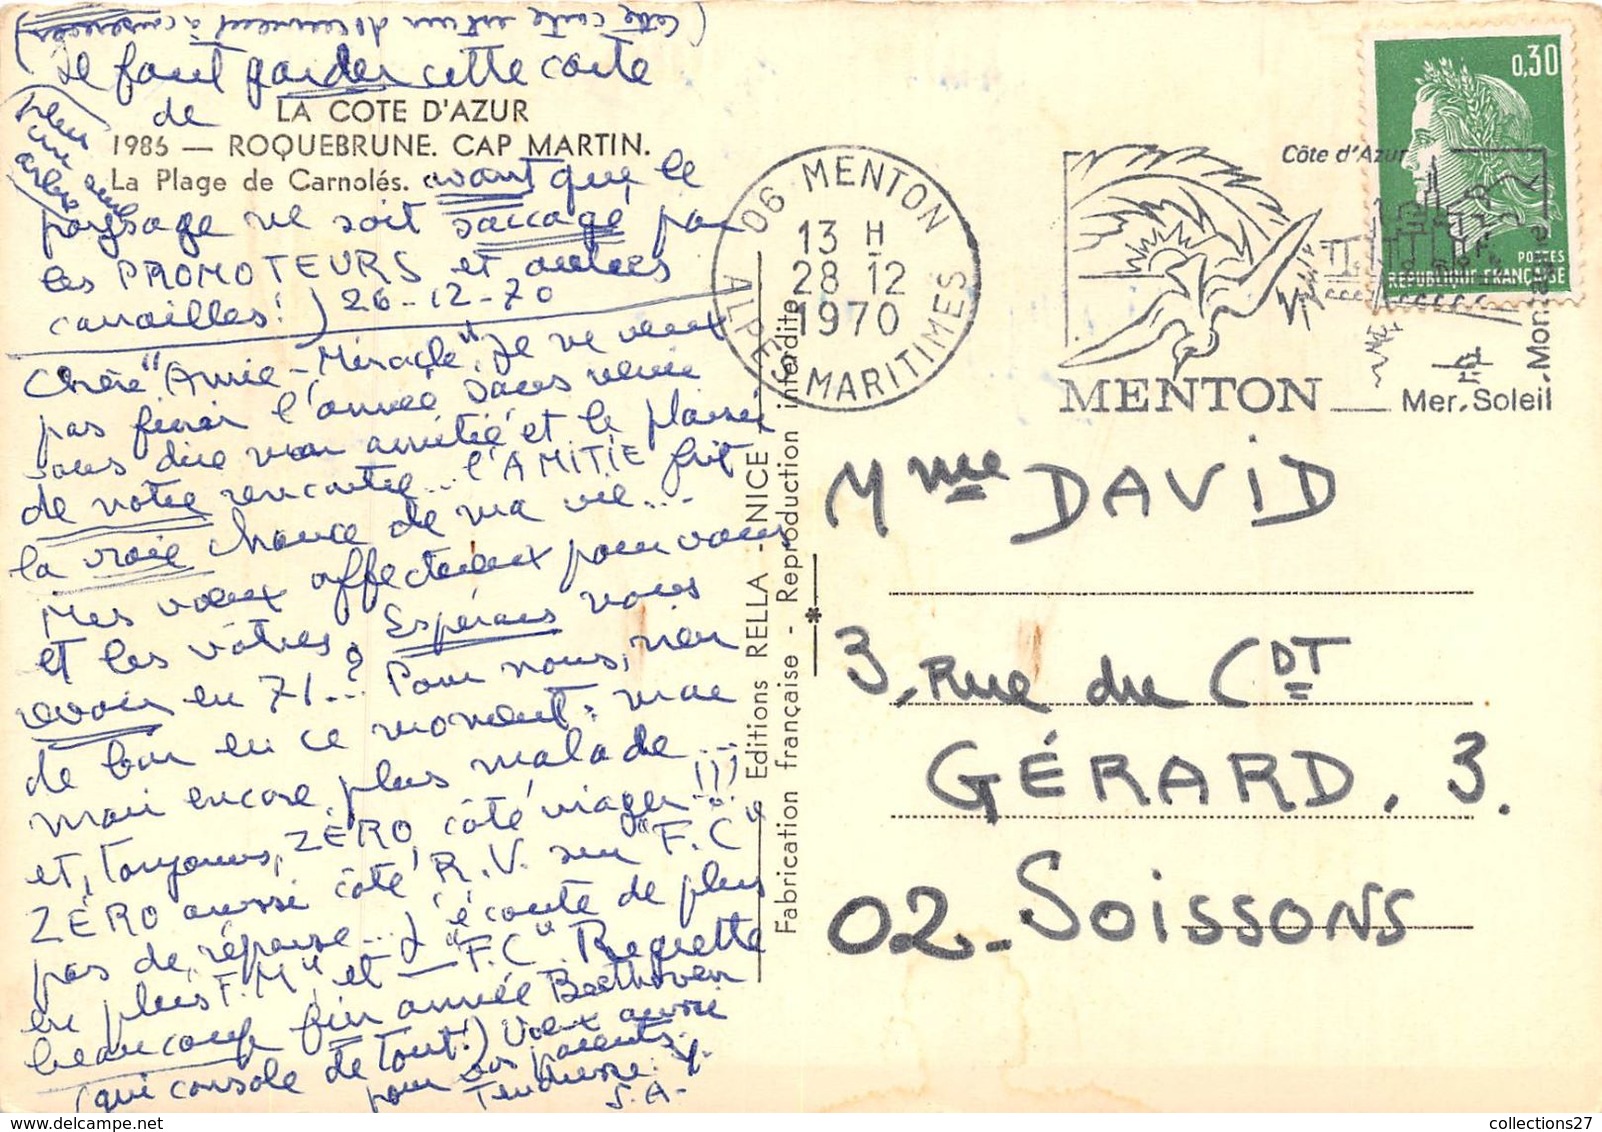 (Cette carte est un document à conserver)
Il faut garder cette carte
de LA COTE D'AZUR
1985 — ROQUEBRUNE. CAP MARTIN.
La Plage de Carnolés. avant que le
(plus
un seul
arbre)
paysage ne soit saccagé par
les PROMOTEURS et autres
canailles!) 26-12-70
Chère "Amie-Miracle", Je ne veux
pas finir l'année sans venir
vous dire mon amitié et le plaisir
de notre rencontre... l'AMITIE fut
la vraie chance de ma vie...
Mes vœux affectueux pour vous
et les vôtres. Espérons vous
revoir en 71.? Pour nous, rien
de bon en ce moment: mon
mari encore plus malade...
et, toujours, ZÉRO, côté viager!!!
ZÉRO aussi côté R.V. sur "F.C"
pas de réponse... J'écoute de plus
en plus "F.M" et "F.C". Regrette
beaucoup fin année Beethoven
(qui console de tout!) Vœux aussi
pour vos parents.
Tendresse. Y.
S.A-
Editions RELLA - NICE
Fabrication française - Reproduction interdite
06 MENTON
13 H
28-12
1970
ALPES MARITIMES
Côte d'Azur
MENTON
Mer, Soleil, Montagne
0,30
POSTES
REPUBLIQUE FRANÇAISE
Mme DAVID
3, Rue du CDT
GÉRARD, 3.
02-SOISSONS
collections27